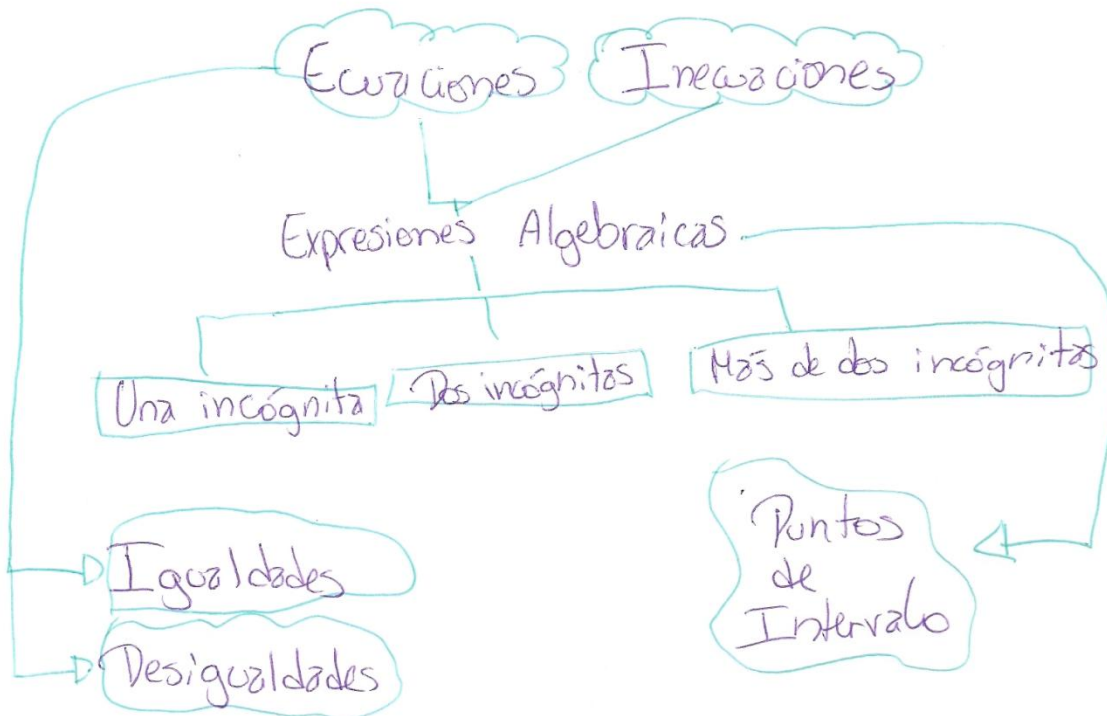 Ecuaciones Inecuaciones
Expresiones Algebraicas
Una incógnita Dos incógnitas Más de dos incógnitas
Igualdades
Desigualdades
Puntos
de
Intervalo